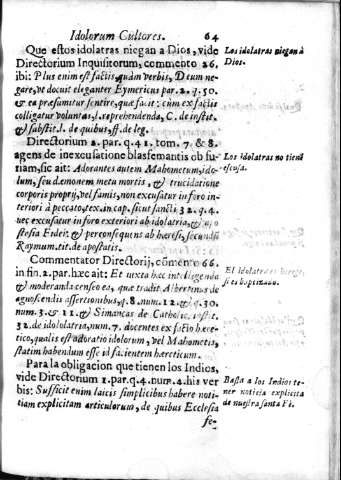 Idolorum Cultores. 64
Que estos idolatras niegan a Dios, vide
Directorium Inquisitorum, commento 26.
ibi: Plus enim est factis, quàm verbis, Deum ne-
gare, vt docuit eleganter Eymericus par. 2. q. 50.
& ea præsumitur sentire, quæ facit: cùm ex factis
colligatur voluntas, l. reprehendenda, C. de instit.
& substit. l. de quibus, ff. de leg.
Los idolatras niegan à
Dios.
Directorium 2. par. q. 41. tom. 7. & 8.
agens de inexcusatione blasfemantis ob fu-
riam, sic ait: Adorantes autem Mahometum, ido-
lum, seu dæmonem metu mortis, & trucidatione
corporis proprij, vel famis, non excusatur in foro in-
teriori à peccato, tex. in cap. sicut sancti 32. q. 4.
nec excusatur in foro exteriori ab idolatria, &
stasia Fidei: & per consequens ab hæresi, secundū
Raymum. tit. de apostatis.
Los idolatras no tienē
escusa.
Commentator Directorij, cōmento 66.
in fin. 2. par. hæc ait: Et iuxta hæc intelligenda
& moderanda censeo ea, quæ tradit Albertinus de
agnoscendis assertionibus, q. 8. num. 12. & q. 30.
num. 3. & 11. & Simancas de Catholic. instit.
32. de idololatria, num. 7. docentes ex facto hære-
tico, qualis est adoratio idolorum, vel Mahometis,
statim habendum esse id facientem hæreticum.
El Idolatra
si es baptizado.
Para la obligacion que tienen los Indios,
vide Directorium 1. par. q. 4. num. 4. his ver
bis: Sufficit enim laicis simplicibus habere noti-
tiam explicitam articulorum, de quibus Ecclesia
fe-
Basta a los Indios te-
ner noticia explicita
de nuestra santa Fè.